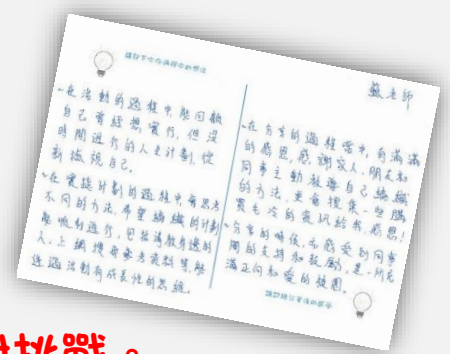 蘇老師
請寫下你在過程中的想法
~在活動的過程中,能回顧
自己曾經想實行,但沒
時間進行的人生計劃,從
新檢視自己。
~在實踐計劃的過程中,需思考
不同的方法,希望編織的計劃
能順利進行,包括請教身邊的
人、上網搜尋參考資料等,能
透過活動有成長性的思維。
~在分享的過程當中,有滿滿
的感恩,感謝家人、朋友和
同事主動教導自己編織
的方法,更會搜集一些購
買毛冷的資訊給我,感恩!
~分享的時候,也感受到同事
間的支持和鼓勵,是一所充
滿正向和愛的校園。
挑戰。